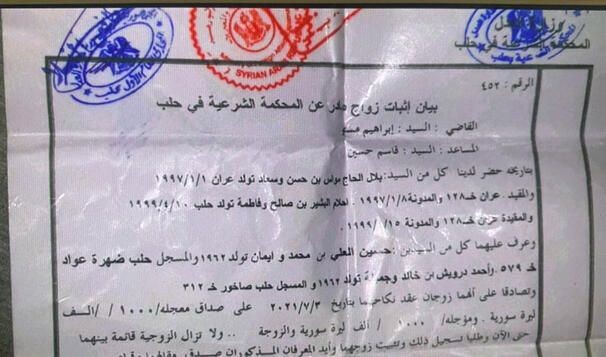 SYRIAN ARAB
وزارة العدل
المحكمة الشرعية في حلب
الرقم : ٤٥٢
بيان إثبات زواج صادر عن المحكمة الشرعية في حلب
القاضي : السيد : إبراهيم
المساعد : السيد : قاسم حسين
بتاريخه حضر لدينا كل من السيد: بلال الحاج موسى بن حسن وسعاد تولد عران ١٩٩٧/١/١
والمقيد عران خـ١٢٨ والمدونة ١٩٩٧/١/٨ . احلام البشير بن صالح وفاطمة تولد حلب ١٩٩٩/٤/١٠
والمقيدة عران خـ١٢٨ والمدونة ١٥/ /١٩٩٩ .
وعرف عليهما كل من السيدين : حسين العلي بن محمد و ايمان تولد ١٩٦٢ والمسجل حلب ضهرة عواد
خـ ٥٧٩ .وأحمد درويش بن خالد وجميلة تولد ١٩٦٢ و المسجل حلب صاخور خـ ٣١٢
وتصادقا على أنهما زوجان عقد نكاحهما بتاريخ ٢٠٢١/٧/٣ على صداق معجله/ ١٠٠٠ / /الـف
ليرة سورية . ومؤجله/ ١٠٠٠ / ألف ليرة سورية والزوجة .. ولا تزال الزوجية قائمة بينهما
حتى الآن وطلبا تسجيل ذلك وتثبيت زوجهما وأيد المعرفان المذكوران صدق